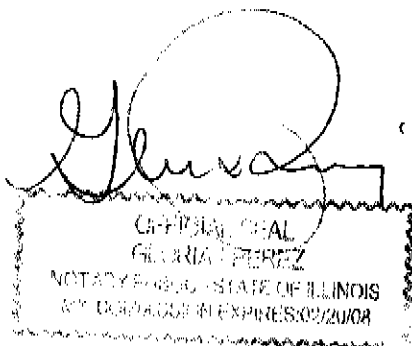 OFFICIAL SEAL
GLORIA PEREZ
NOTARY PUBLIC - STATE OF ILLINOIS
MY COMMISSION EXPIRES:02/20/08